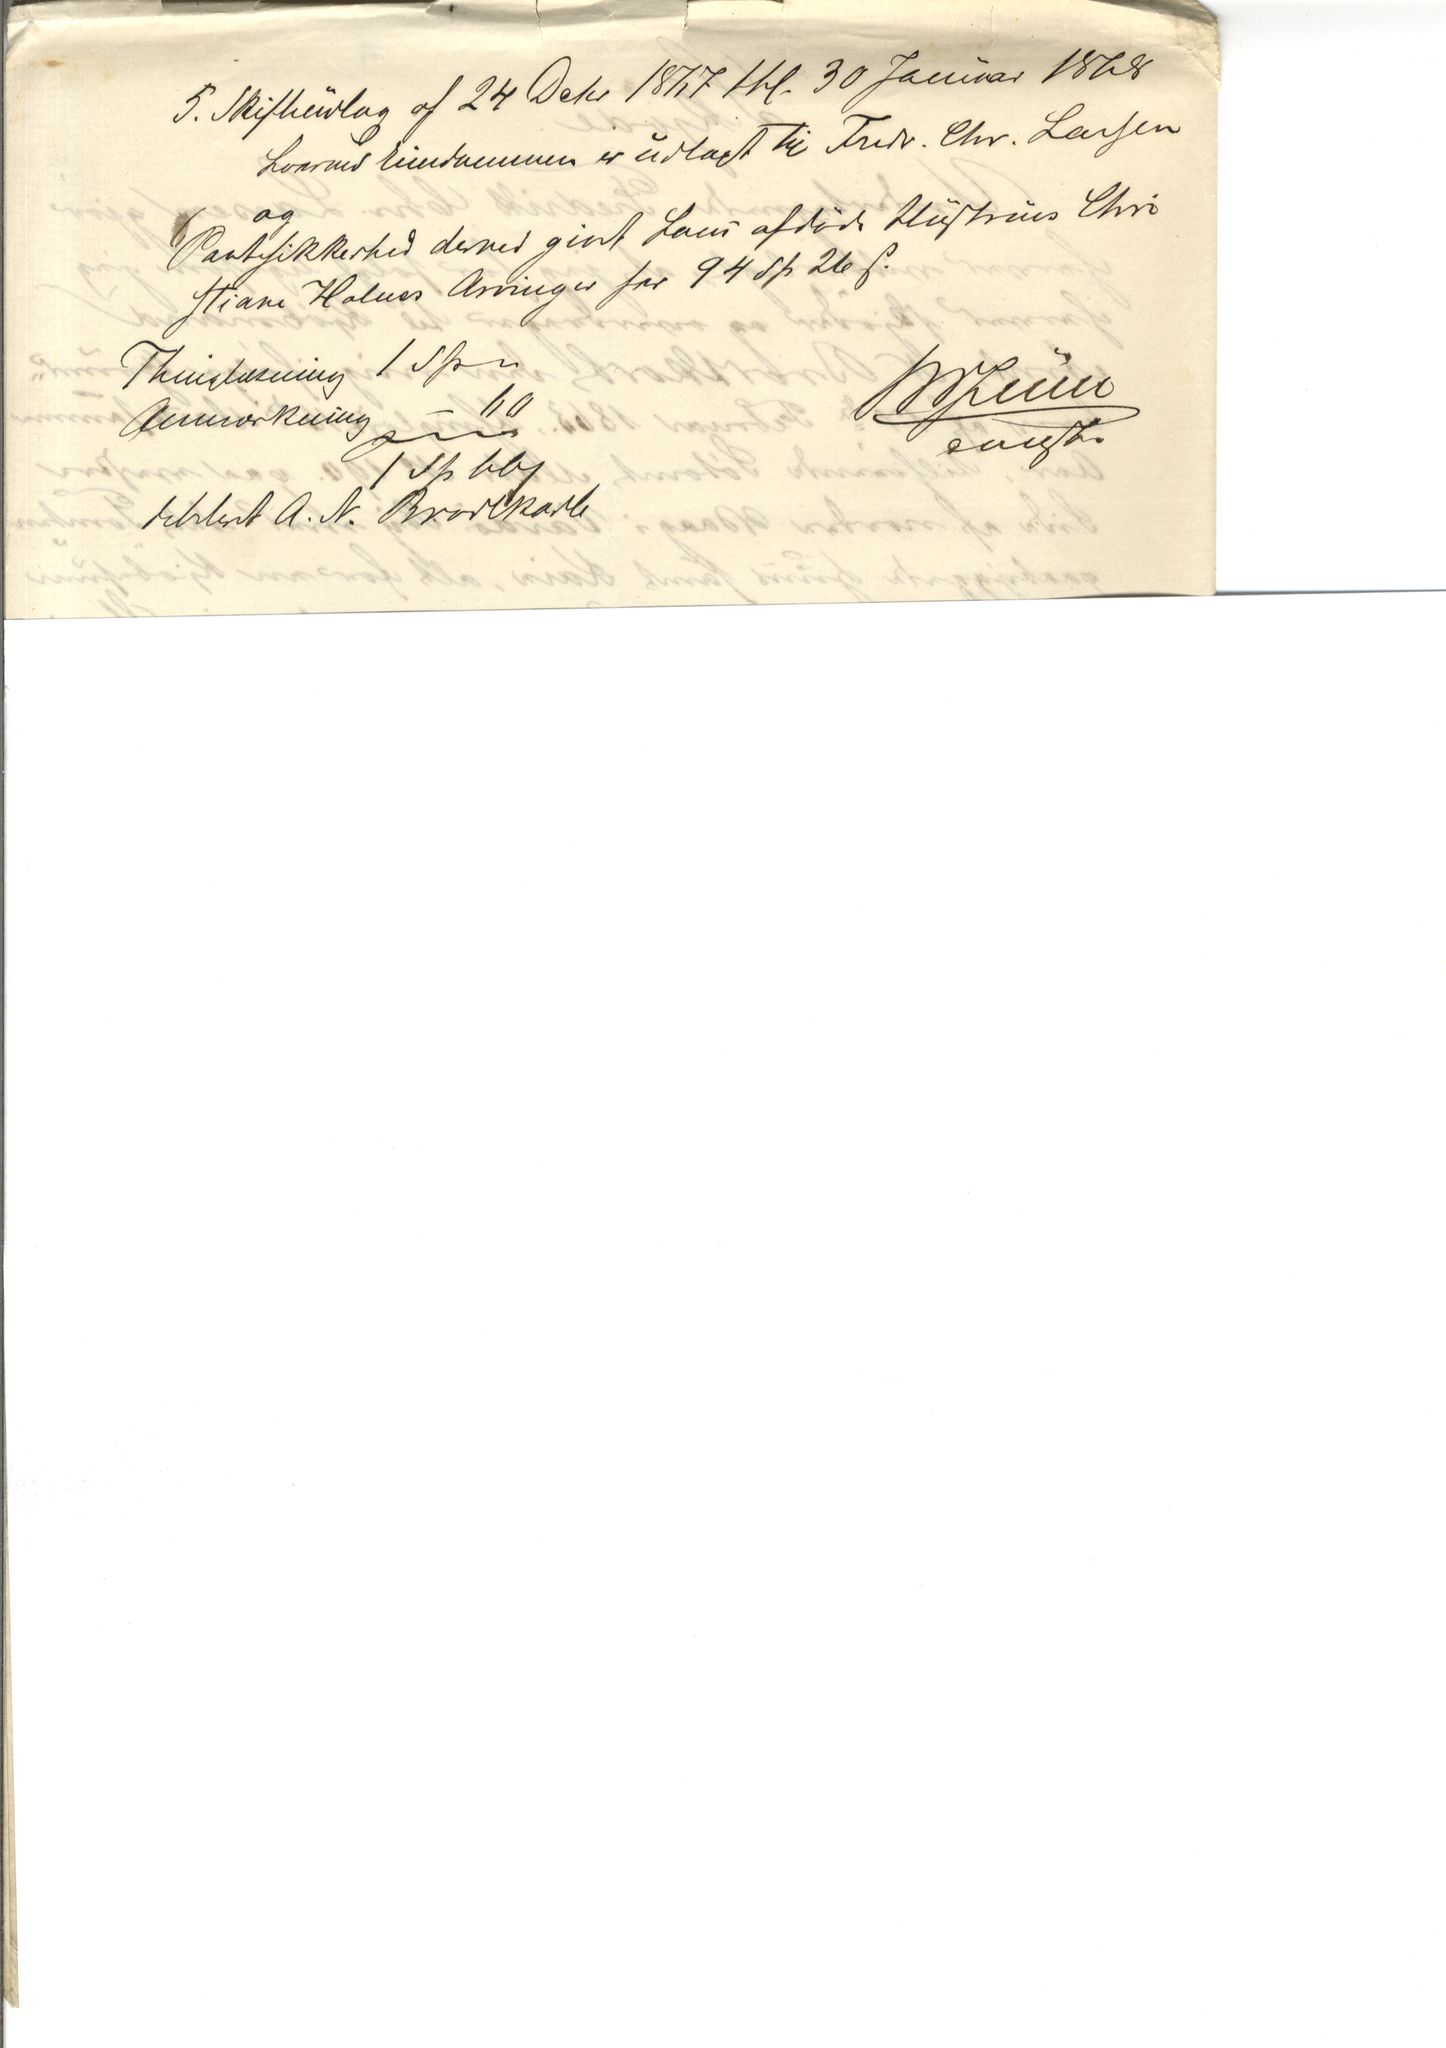 5. Skifteudlæg af 24 Dcbr 1867 thl. 30 Januar 1868
hvorved Eiendommen er udlagt til Fredr. Chr. Larsen
og
Pantesikkerhed derved givet hans afdøde Hustrues Chri
stiane Holmes Arvinger for 94 Sp 26 s.
Thinglæsning 1 Sp "
Anmærkning – 60
1 Sp 60 s
debiteret A. N. Brodtkorb
const.